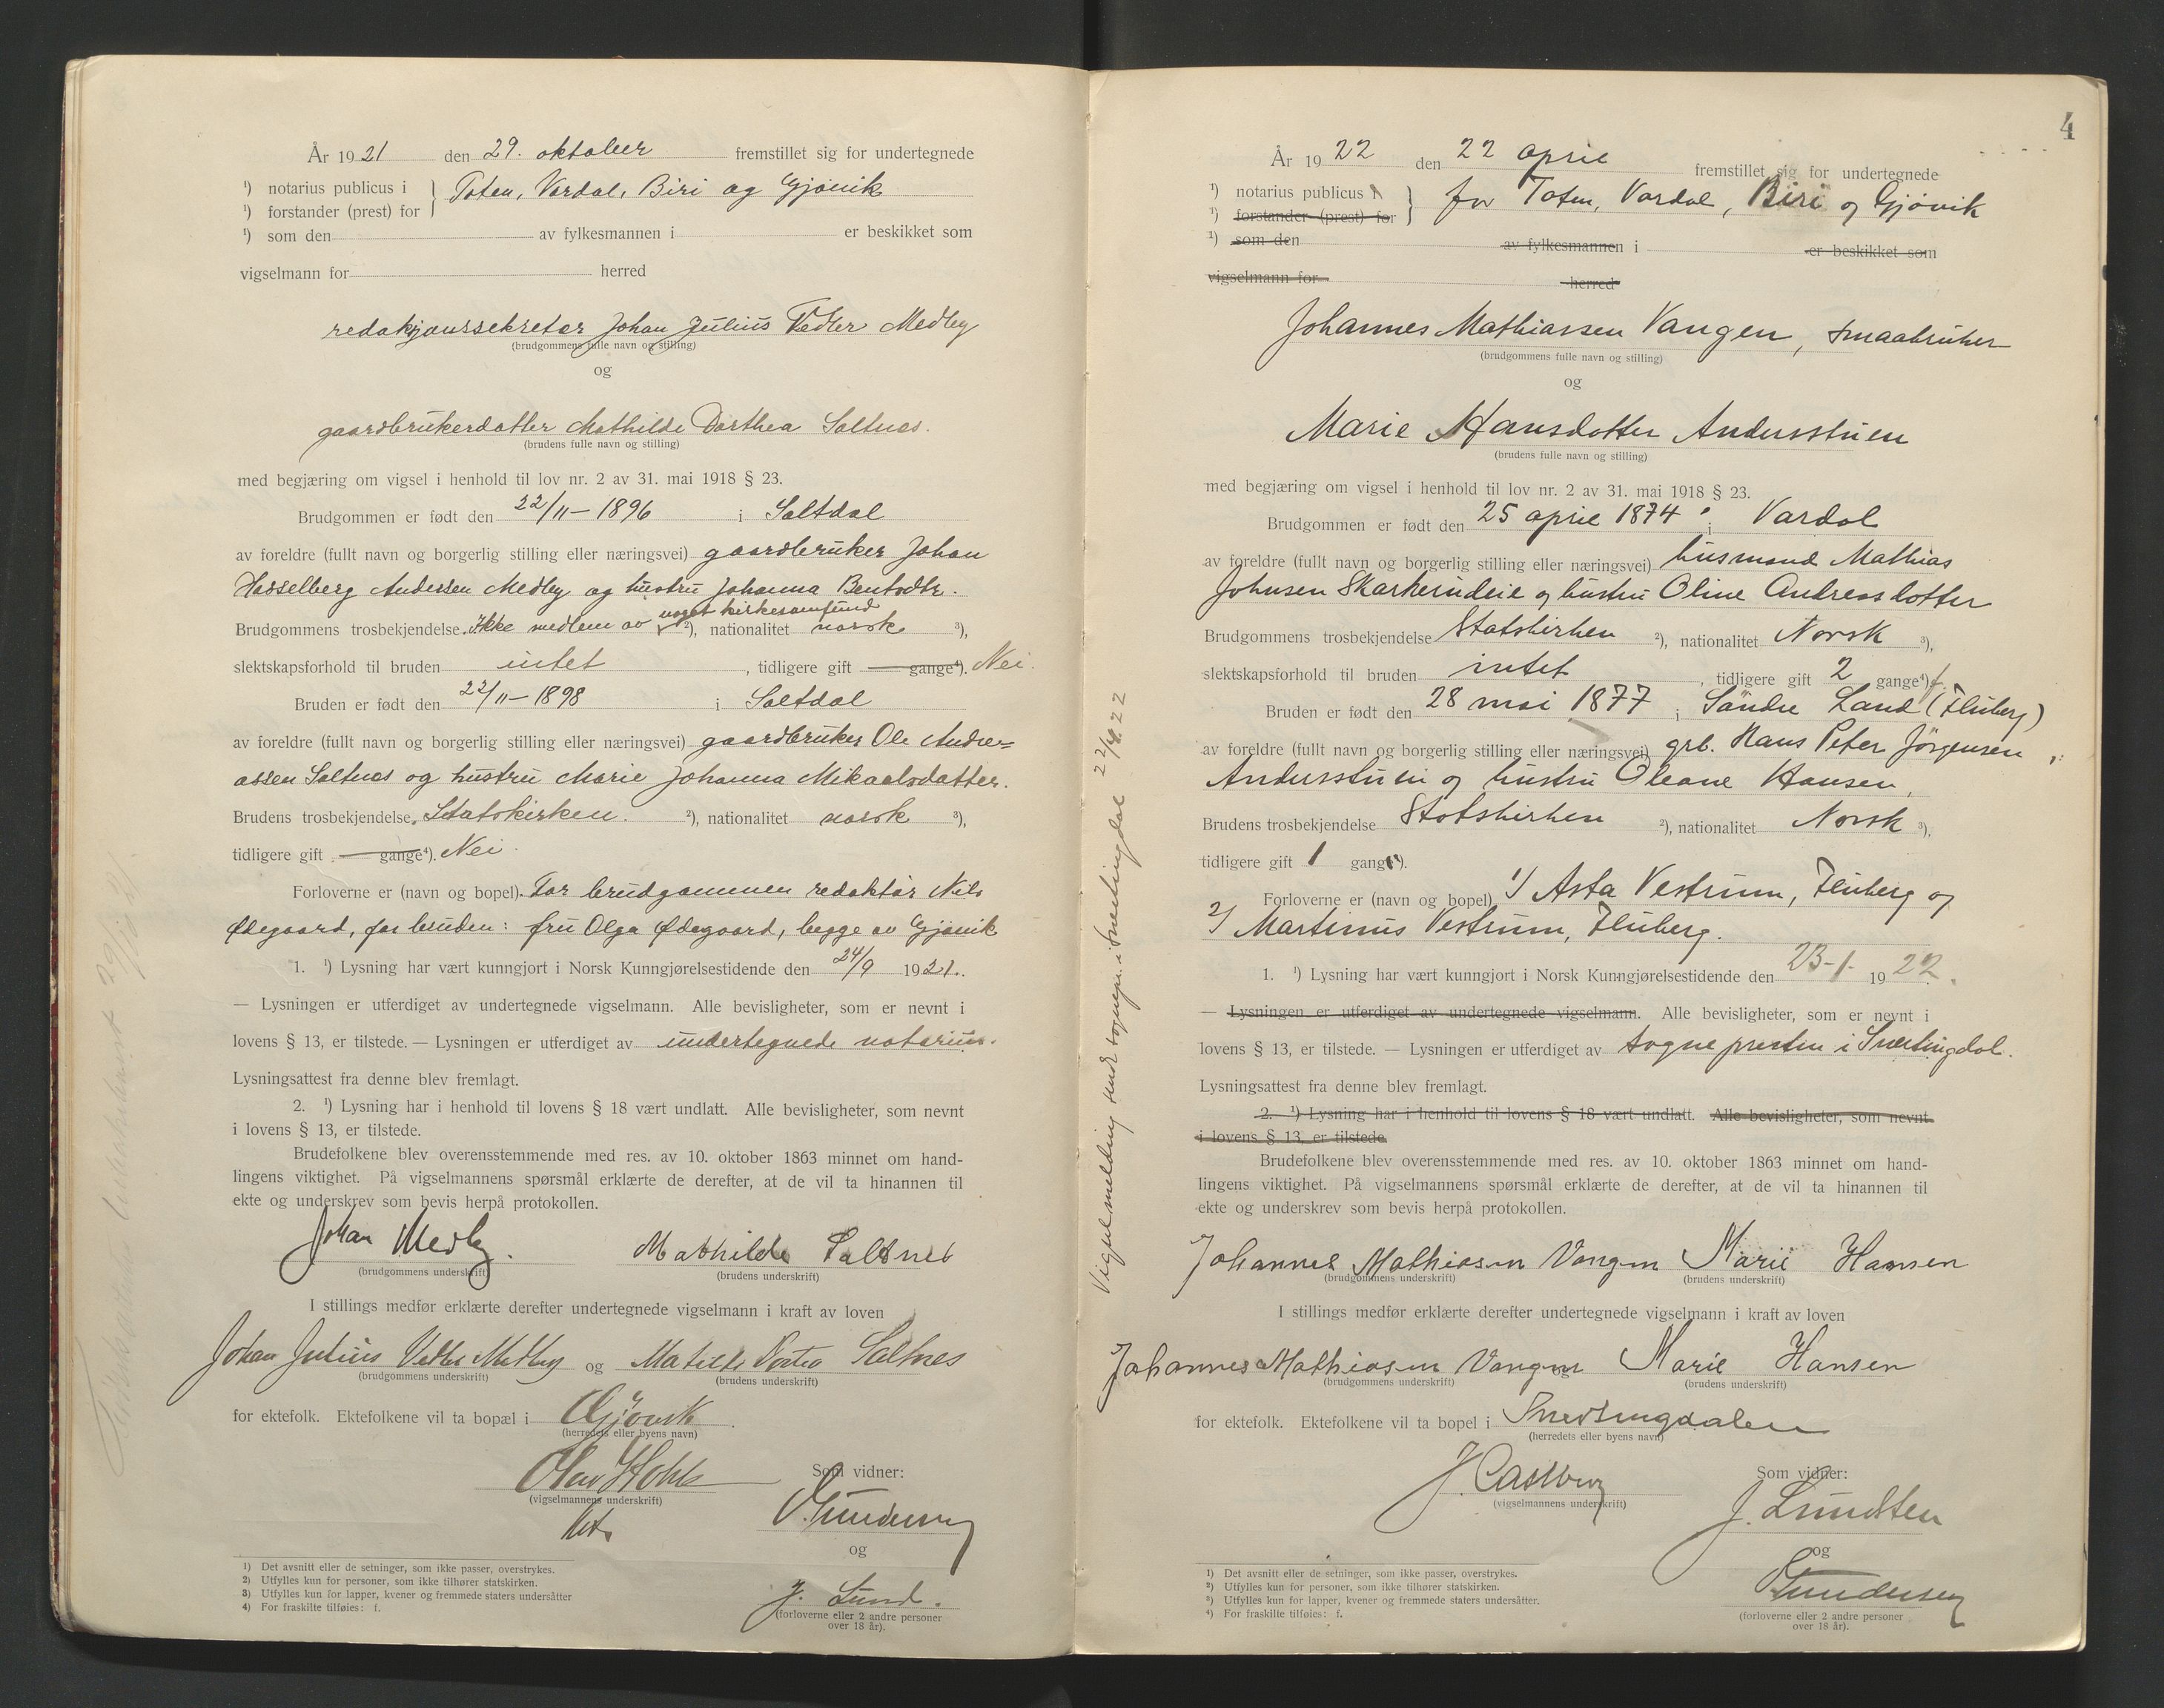 År 1921 den 29. oktober fremstillet sig for undertegnede
¹) notarius publicus i } Toten, Vardal, Biri og Gjøvik
¹) forstander (prest) for
¹) som den av fylkesmannen i er beskikket som
vigselmann for herred
redaksjonssekretær Johan Julius Vedler Medby
(brudgommens fulle navn og stilling)
og
gaardbrukerdatter Mathilde Dorthea Saltnes.
(brudens fulle navn og stilling)
med begjæring om vigsel i henhold til lov nr. 2 av 31. mai 1918 § 23.
Brudgommen er født den 22/11-1896 i Saltdal
av foreldre (fullt navn og borgerlig stilling eller næringsvei) gaardbruker Johan
Hasselberg Andersen Medby og hustru Johanna Bentsdtr.
Brudgommens trosbekjendelse. Ikke medlem av noget kirkesamfund ²), nationalitet norsk ³),
slektskapsforhold til bruden intet , tidligere gift gange⁴). Nei.
Bruden er født den 22/11-1898 i Saltdal
av foreldre (fullt navn og borgerlig stilling eller næringsvei) gaardbruker Ole Andre=
assen Saltnes og hustru Marie Johanna Mikaelsdatter.
Brudens trosbekjendelse. Statskirken. ²), nationalitet norsk ³),
tidligere gift gange⁴). Nei.
Forloverne er (navn og bopel). For brudgommen redaktør Nils
Ødegaard, for bruden: fru Olga Ødegaard, begge av Gjøvik
1. ¹) Lysning har vært kunngjort i Norsk Kunngjørelsestidende den 24/9 1921.
— Lysningen er utferdiget av undertegnede vigselmann. Alle bevisligheter, som er nevnt i
lovens § 13, er tilstede. — Lysningen er utferdiget av undertegnede notarius.
Lysningsattest fra denne blev fremlagt.
2. ¹) Lysning har i henhold til lovens § 18 vært undlatt. Alle bevisligheter, som nevnt
i lovens § 13, er tilstede.
Brudefolkene blev overensstemmende med res. av 10. oktober 1863 minnet om hand-
lingens viktighet. På vigselmannens spørsmål erklærte de derefter, at de vil ta hinannen til
ekte og underskrev som bevis herpå protokollen.
Johan Medby. Mathilde Saltnes
(brudgommens underskrift) (brudens underskrift)
I stillings medfør erklærte derefter undertegnede vigselmann i kraft av loven
Johan Julius Vedler Medby og Matilde Dortea Saltnes
(brudgommens underskrift) (brudens underskrift)
for ektefolk. Ektefolkene vil ta bopæl i Gjøvik.
(herredets eller byens navn)
Olav
(vigselmannens underskrift)
Som vidner:
Gundersen
og
J. Lund.
(forloverne eller 2 andre personer
over 18 år).
1) Det avsnitt eller de setninger, som ikke passer, overstrykes.
2) Utfylles kun for personer, som ikke tilhører statskirken.
3) Utfylles kun for lapper, kvener og fremmede staters undersåtter
4) For fraskilte tilføies: f.
4
År 1922 den 22 april fremstillet sig for undertegnede
¹) notarius publicus i } for Toten, Vardal, Biri og Gjøvik
¹) forstander (prest) for
¹) som den av fylkesmannen i er beskikket som
vigselmann for herred
Johannes Mathiassen Vangen, smaabruker
(brudgommens fulle navn og stilling)
og
Marie Hansdotter Andersstuen
(brudens fulle navn og stilling)
med begjæring om vigsel i henhold til lov nr. 2 av 31. mai 1918 § 23.
Brudgommen er født den 25 april 1874 i Vardal
av foreldre (fullt navn og borgerlig stilling eller næringsvei) husmand Mathias
Johnsen Skarkerudeie og hustru Oline Andreasdotter
Brudgommens trosbekjendelse Statskirken ²), nationalitet Norsk ³),
slektskapsforhold til bruden intet , tidligere gift 2 gange⁴) f.
Bruden er født den 28 mai 1877 i Søndre Land (Fluberg)
av foreldre (fullt navn og borgerlig stilling eller næringsvei) grb. Hans Peter Jörgensen
Andersstuen og hustru Oleane Hansen,
Brudens trosbekjendelse Statskirken ²), nationalitet Norsk ³),
tidligere gift 1 gang⁴).
Forloverne er (navn og bopel) 1/ Asta Vestrum, Fluberg og
2/ Martinus Vestrum, Fluberg.
1. ¹) Lysning har vært kunngjort i Norsk Kunngjørelsestidende den 23-1- 1922.
— Lysningen er utferdiget av undertegnede vigselmann. Alle bevisligheter, som er nevnt i
lovens § 13, er tilstede. — Lysningen er utferdiget av sognepresten i Snertingdal.
Lysningsattest fra denne blev fremlagt.
2. ¹) Lysning har i henhold til lovens § 18 vært undlatt. Alle bevisligheter, som nevnt
i lovens § 13, er tilstede.
Brudefolkene blev overensstemmende med res. av 10. oktober 1863 minnet om hand-
lingens viktighet. På vigselmannens spørsmål erklærte de derefter, at de vil ta hinannen til
ekte og underskrev som bevis herpå protokollen.
Johannes Mathiasen Vangen Marie Hansen
(brudgommens underskrift) (brudens underskrift)
I stillings medfør erklærte derefter undertegnede vigselmann i kraft av loven
Johannes Mathiasen Vangen og Marie Hansen
(brudgommens underskrift) (brudens underskrift)
for ektefolk. Ektefolkene vil ta bopel i Snertingdalen
(herredets eller byens navn)
J. Castberg
(vigselmannens underskrift)
Som vidner:
J. Lundsten
og
Gundersen
(forloverne eller 2 andre personer
over 18 år).
¹) Det avsnitt eller de setninger, som ikke passer, overstrykes.
²) Utfylles kun for personer, som ikke tilhører statskirken.
³) Utfylles kun for lapper, kvener og fremmede staters undersåtter.
⁴) For fraskilte tilføies: f.
Vigselmelding sendt sognepr. i Snertingdal 22/4.22